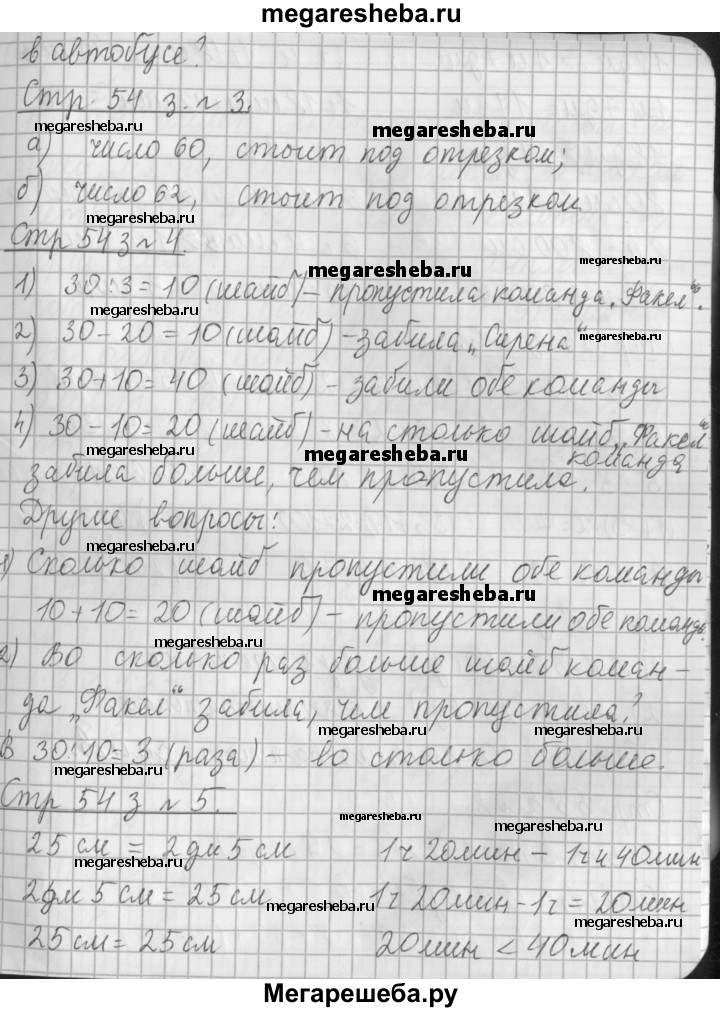 megaresheba.ru
в автобусе?
Стр. 54 з. № 3.
megaresheba.ru
megaresheba.ru
а) число 60, стоит под отрезком;
б) число 62, стоит под отрезком.
megaresheba.ru
Стр 54 з № 4.
megaresheba.ru
megaresheba.ru
1) 30:3=10 (шайб) – пропустила команда „Факел“.
2) 30–20=10 (шайб) – забила „Сирена“
megaresheba.ru
3) 30+10=40 (шайб) – забили обе команды
4) 30–10=20 (шайб) – на столько шайб „Факел“
megaresheba.ru
megaresheba.ru
команда
забила больше, чем пропустила.
Другие вопросы:
megaresheba.ru
1) Сколько шайб пропустили обе команды
megaresheba.ru
10+10=20 (шайб) – пропустили обе команды.
megaresheba.ru
2) Во сколько раз больше шайб коман-
да „Факел“ забила, чем пропустила?
megaresheba.ru
megaresheba.ru
В 30:10=3 (раза) – во столько больше.
megaresheba.ru
Стр 54 з № 5.
megaresheba.ru
megaresheba.ru
25 см = 2дм 5 см 1ч 20мин – 1ч и 40мин
megaresheba.ru
2дм 5 см = 25 см 1ч 20мин – 1ч = 20мин
megaresheba.ru
megaresheba.ru
25 см = 25 см 20мин < 40мин
Мегарешеба.ру